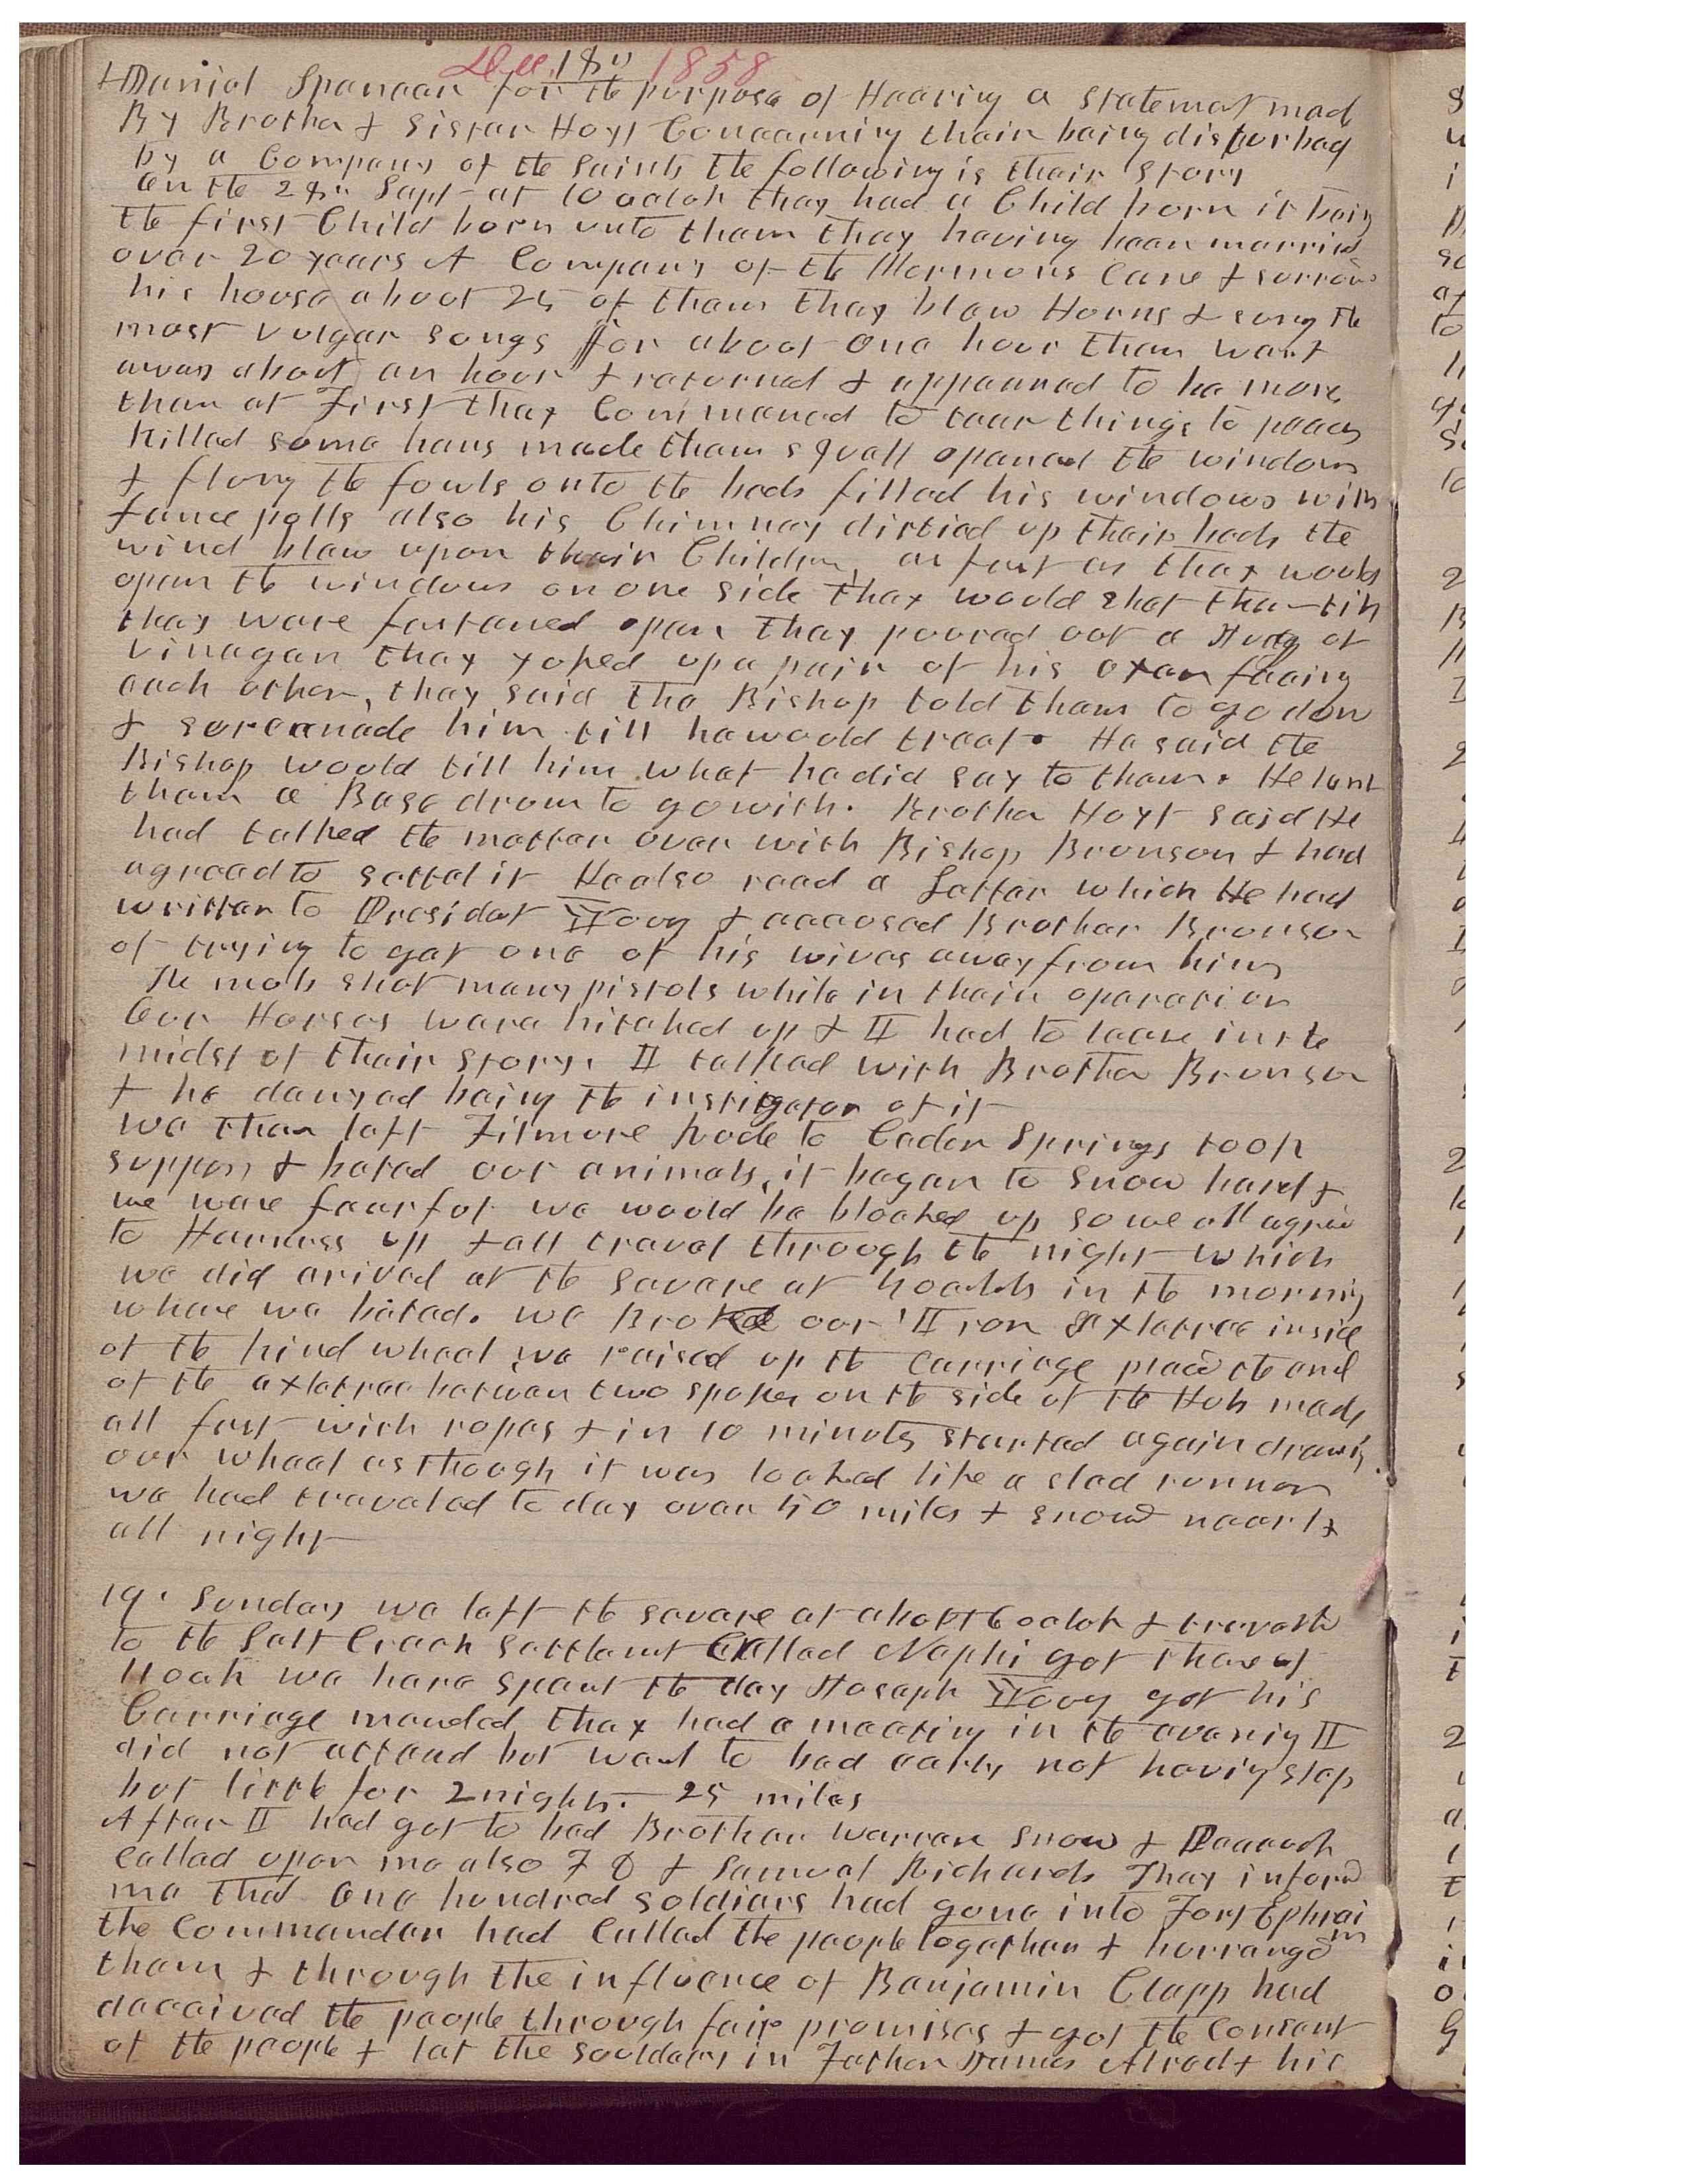 Dec. 18th 1858
& Daniel Spencer for the purpose of Hearing a statement mad
By Brother & Sister Hoyt Concerning their being disturbed
by a Company of the Saints the following is their story
on the 28th Sept at 10 oclok they had a Child born it being
the first Child born unto them they having been married
over 20 years A Company of the Mormons Came & surround
his house about 25 of them they blew Horns & sung the
most vulgar songs for about one hour then went
away about an hour & returned & appeared to be more
than at First they Commenced to tear things to peaces
killed some hens made them squall opened the windows
& flung the fowls onto the beds filled his windows with
fence polls also his Chimney dirtied up their beds the
wind blew upon their Children, as fast as they would
open the windows on one side they would shut them till
they were fastened open they poured out a Keg of
vinagar they yoked up a pair of his oxen facing
each other, they said the Bishop told them to go down
& sereanade him till he would treat. He said the
Bishop would till him what he did say to them. He lent
them a Base drum to go with. Brother Hoyt said He
had talked the matter over with Bishop Bronson & had
agreed to settel it He also read a Letter which He had
written to President Young & accused Brother Bronson
of trying to get one of his wives away from him
The mob shot many pistols while in their operation
Our Horses were hitched up & I had to leave in the
midst of their story. I talked with Brother Bronson
& he denyed being the instigator of it
we then left Filmore rode to Ceder Springs took
supper & bated our animals, it began to snow hard &
we were fearful we would be blocked up so we all agreed
to Harness up & all travel through the night which
we did arived at the Savare at 4 oclok in the morning
whare we bated. we Broke our Iron Axletree inside
of the hind wheel we raised up the Carriage placed the end
of the axletree between two spokes on the side of the Hub made
all fast with ropes & in 10 minuts started again drawing
our wheel as though it was locked like a sled runner
we had traveled to day over 50 miles & snowed nearly
all night
19. Sunday we left the savare at about 6 oclok & traveled
to the Salt Creek settlement Called Nephi got there at
Noon we here spent the day Joseph Young got his
Carriage mended they had a meeting in the evening I
did not attend but went to bed early not having slep
but little for 2 nights. 25 miles
After I had got to bed Brother Warren Snow & Peacock
Called upon me also F D & Samuel Richards They informed
me that one hundred soldiers had gone into Fort Ephraim
the Commander had Called the people together & harrangued
them & through the influence of Benjamin Clapp had
deceived the people through fair promises & got the Consent
of the people & let the souldiers in Father James Alred & his